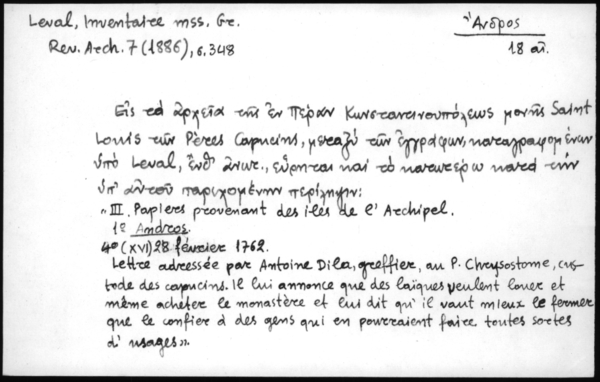 Leval, Inventaire mss. Gr.
Ἄνδρος
Rev. Arch. 7 (1886), σ. 348
18 αἰ.
Εἰς τὰ ἀρχεῖα τῆς ἐν Πέραν Κωνσταντινουπόλεως μονῆς Saint
Louis τῶν Pères Capucins, μεταξὺ τῶν ἐγγράφων, καταγραφομένων
ὑπὸ Leval, ἔνθ' ἀνωτ., εὕρηται καὶ τὸ κατωτέρω κατὰ τὴν
ὑπ' αὐτοῦ παρεχομένην περίληψιν:
"III. Papiers provenant des iles de l'Archipel.
1º Andros.
4º (XVI) 28 février 1762.
Lettre adressée par Antoine Dila, greffier, au P. Chrysostome, cus-
tode des capucins. Il lui annonce que des laïques veulent louer et
même acheter le monastère et lui dit qu'il vaut mieux le fermer
que le confier à des gens qui en pourraient faire toutes sortes
d'usages».